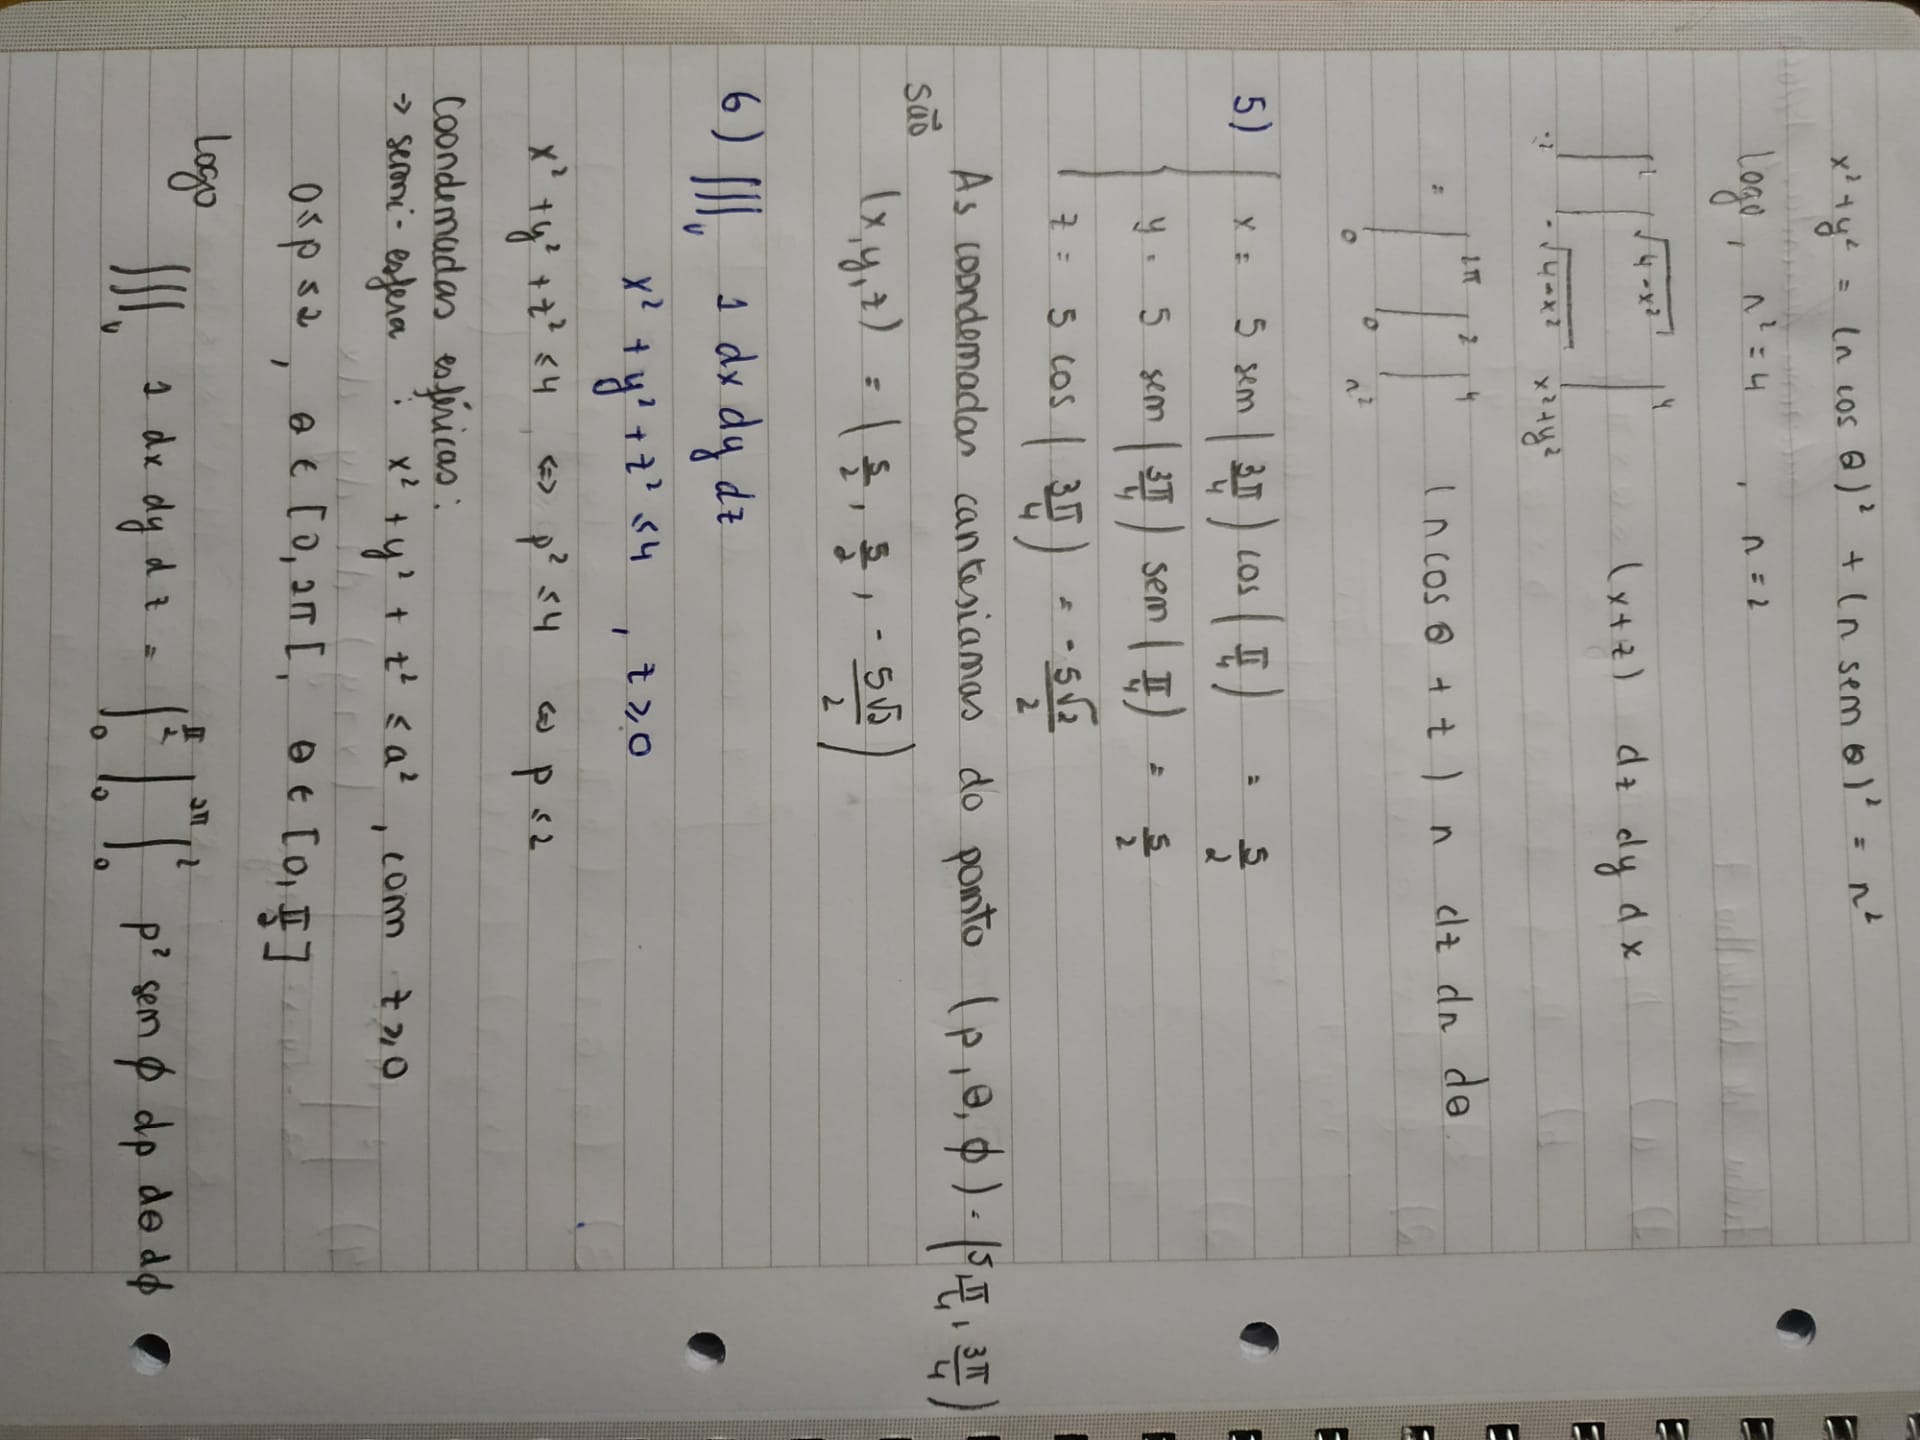 x² + y² = (r cos θ)² + (r sem θ)² = r²
Logo, r² = 4 , r = 2
∫_{-2}^{2} ∫_{-√(4-x²)}^{√(4-x²)} ∫_{x²+y²}^{4} (x+z) dz dy dx
= ∫_{0}^{2π} ∫_{0}^{2} ∫_{r²}^{4} (r cos θ + z) r dz dr dθ
5) { x = 5 sem (3π/4) cos (π/4) = 5/2
y = 5 sem (3π/4) sem (π/4) = 5/2
z = 5 cos (3π/4) = -5√2/2
As coordenadas cartesianas do ponto (ρ, θ, ϕ) = (5, π/4, 3π/4)
são
(x, y, z) = (5/2, 5/2, -5√2/2)
6) ∭_v 1 dx dy dz
x² + y² + z² ≤ 4 , z ≥ 0
x² + y² + z² ≤ 4 ⇔ ρ² ≤ 4 ⇔ ρ ≤ 2
Coordenadas esféricas:
→ semi-esfera : x² + y² + z² ≤ a² , com z ≥ 0
0 ≤ ρ ≤ 2 , θ ∈ [0, 2π[, θ ∈ [0, π/2]
Logo
∭_v 1 dx dy dz = ∫_{0}^{π/2} ∫_{0}^{2π} ∫_{0}^{2} ρ² sem ϕ dρ dθ dϕ